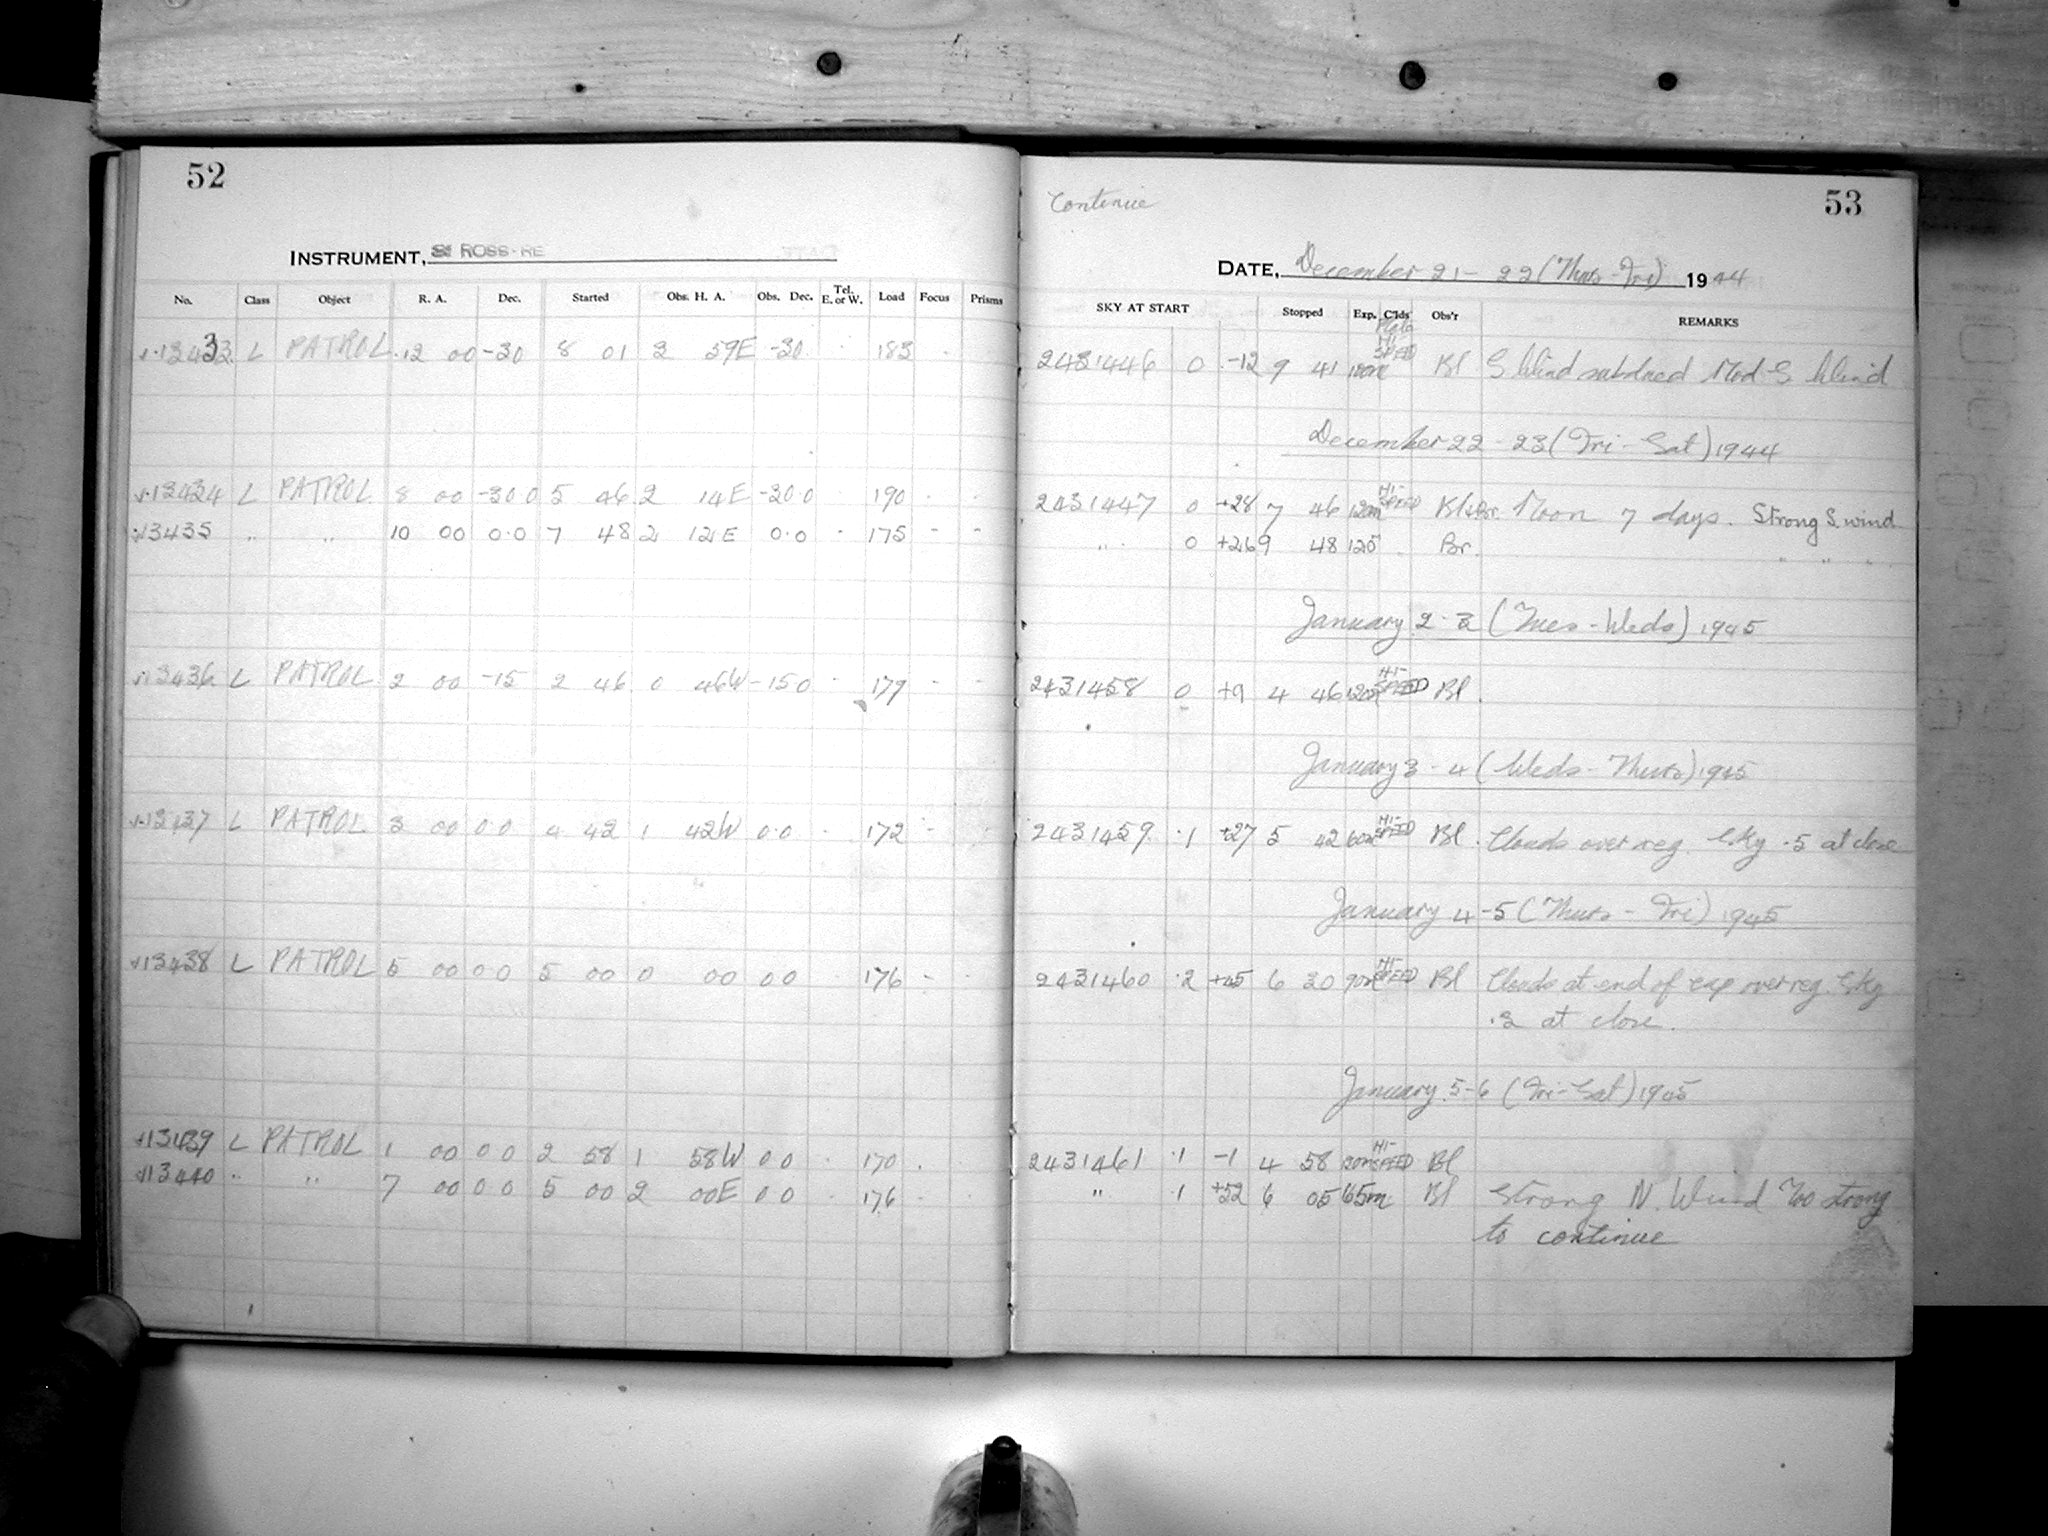 52
INSTRUMENT, ROSS-RE
No. Class Object R. A. Dec. Started Obs. H. A. Obs. Dec. Tel. E. or W. Load Focus Prisms
13433 L PATROL 12 00 -30 8 01 3 59E -30 183
13434 L PATROL 8 00 -30 0 5 46 2 14E -30 0 190
13435 " " 10 00 0.0 7 48 2 12E 0.0 175
13436 L PATROL 2 00 -15 2 46 0 46W -15 0 177
13437 L PATROL 3 00 0 0 4 42 1 42W 0.0 172
13438 L PATROL 5 00 0 0 5 00 0 00 0 0 176
13439 L PATROL 1 00 0 0 2 58 1 58W 0 0 170
13440 " " 7 00 0 0 5 00 2 00E 0 0 176
Continue
53
DATE, December 21-22 (Thurs-Fri) 1944
SKY AT START Stopped Exp. C'lds Obs'r REMARKS
2431446 0 -12 9 41 100m HI-SPEED Bl S Wind subdued Mod-S Wind
December 22-23 (Fri-Sat) 1944
2431447 0 +28 7 46 120m HI-SPEED Bl+Br. Moon 7 days. Strong S. wind
" 0 +26 9 48 120 Br. " " "
January 2-3 (Tues-Weds) 1945
2431458 0 +9 4 46 120m HI-SPEED Bl.
January 3-4 (Weds-Thurs) 1945
2431459 .1 +27 5 42 60m HI-SPEED Bl. Clouds over reg. Sky .5 at close
January 4-5 (Thurs-Fri) 1945
2431460 .2 +45 6 30 90m HI-SPEED Bl Clouds at end of exp over reg. Sky
.3 at close.
January 5-6 (Fri-Sat) 1945
2431461 .1 -1 4 58 120m HI-SPEED Bl
" .1 +52 6 05 65m Bl Strong N. Wind Too strong
to continue